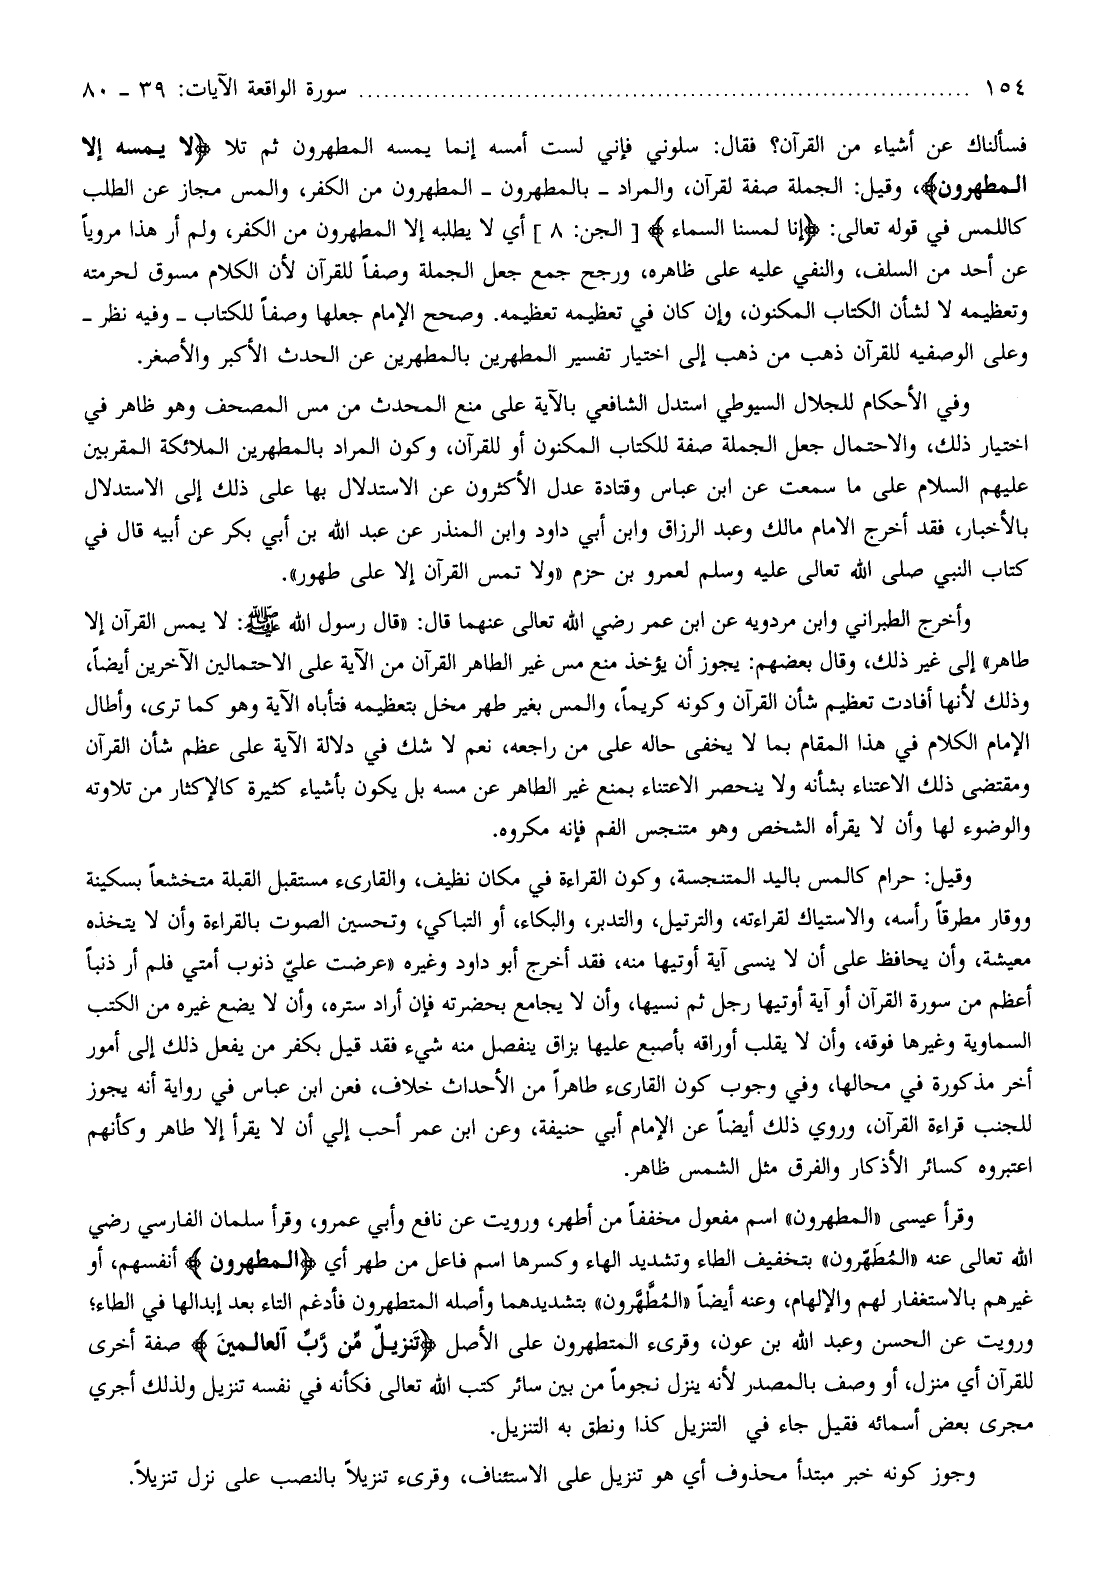 ١٥٤ ........................................................................ سورة الواقعة الآيات: ٣٩ ـ ٨٠
فسألناك عن أشياء من القرآن؟ فقال: سلوني فإني لست أمسه إنما يمسه المطهرون ثم تلا ﴿لا يمسه إلا
المطهرون﴾، وقيل: الجملة صفة لقرآن، والمراد ـ بالمطهرون ـ المطهرون من الكفر، والمس مجاز عن الطلب
كاللمس في قوله تعالى: ﴿إنا لمسنا السماء﴾ [ الجن: ٨ ] أي لا يطلبه إلا المطهرون من الكفر، ولم أر هذا مروياً
عن أحد من السلف، والنفي عليه على ظاهره، ورجح جمع جعل الجملة وصفاً للقرآن لأن الكلام مسوق لحرمته
وتعظيمه لا لشأن الكتاب المكنون، وإن كان في تعظيمه تعظيمه. وصحح الإمام جعلها وصفاً للكتاب ـ وفيه نظر ـ
وعلى الوصفيه للقرآن ذهب من ذهب إلى اختيار تفسير المطهرين بالمطهرين عن الحدث الأكبر والأصغر.
وفي الأحكام للجلال السيوطي استدل الشافعي بالآية على منع المحدث من مس المصحف وهو ظاهر في
اختيار ذلك، والاحتمال جعل الجملة صفة للكتاب المكنون أو للقرآن، وكون المراد بالمطهرين الملائكة المقربين
عليهم السلام على ما سمعت عن ابن عباس وقتادة عدل الأكثرون عن الاستدلال بها على ذلك إلى الاستدلال
بالأخبار، فقد أخرج الامام مالك وعبد الرزاق وابن أبي داود وابن المنذر عن عبد الله بن أبي بكر عن أبيه قال في
كتاب النبي صلى الله تعالى عليه وسلم لعمرو بن حزم «ولا تمس القرآن إلا على طهور».
وأخرج الطبراني وابن مردويه عن ابن عمر رضي الله تعالى عنهما قال: «قال رسول الله ﷺ: لا يمس القرآن إلا
طاهر» إلى غير ذلك، وقال بعضهم: يجوز أن يؤخذ منع مس غير الطاهر القرآن من الآية على الاحتمالين الآخرين أيضاً،
وذلك لأنها أفادت تعظيم شأن القرآن وكونه كريماً، والمس بغير طهر مخل بتعظيمه فتأباه الآية وهو كما ترى، وأطال
الإمام الكلام في هذا المقام بما لا يخفى حاله على من راجعه، نعم لا شك في دلالة الآية على عظم شأن القرآن
ومقتضى ذلك الاعتناء بشأنه ولا ينحصر الاعتناء بمنع غير الطاهر عن مسه بل يكون بأشياء كثيرة كالإكثار من تلاوته
والوضوء لها وأن لا يقرأه الشخص وهو متنجس الفم فإنه مكروه.
وقيل: حرام كالمس باليد المتنجسة، وكون القراءة في مكان نظيف، والقارىء مستقبل القبلة متخشعاً بسكينة
ووقار مطرقاً رأسه، والاستياك لقراءته، والترتيل، والتدبر، والبكاء، أو التباكي، وتحسين الصوت بالقراءة وأن لا يتخذه
معيشة، وأن يحافظ على أن لا ينسى آية أوتيها منه، فقد أخرج أبو داود وغيره «عرضت عليّ ذنوب أمتي فلم أر ذنباً
أعظم من سورة القرآن أو آية أوتيها رجل ثم نسيها، وأن لا يجامع بحضرته فإن أراد ستره، وأن لا يضع غيره من الكتب
السماوية وغيرها فوقه، وأن لا يقلب أوراقه بأصبع عليها بزاق ينفصل منه شيء فقد قيل بكفر من يفعل ذلك إلى أمور
أخر مذكورة في محالها، وفي وجوب كون القارىء طاهراً من الأحداث خلاف، فعن ابن عباس في رواية أنه يجوز
للجنب قراءة القرآن، وروي ذلك أيضاً عن الإمام أبي حنيفة، وعن ابن عمر أحب إلي أن لا يقرأ إلا طاهر وكأنهم
اعتبروه كسائر الأذكار والفرق مثل الشمس ظاهر.
وقرأ عيسى «المطهرون» اسم مفعول مخففاً من أطهر، ورويت عن نافع وأبي عمرو، وقرأ سلمان الفارسي رضي
الله تعالى عنه «المُطَهّرون» بتخفيف الطاء وتشديد الهاء وكسرها اسم فاعل من طهر أي ﴿المطهرون﴾ أنفسهم، أو
غيرهم بالاستغفار لهم والإلهام، وعنه أيضاً «المُطَّهَّرون» بتشديدهما وأصله المتطهرون فأدغم التاء بعد إبدالها في الطاء؛
ورويت عن الحسن وعبد الله بن عون، وقرىء المتطهرون على الأصل ﴿تَنزيلٌ مِّن رَّبِّ ٱلعالمينَ﴾ صفة أخرى
للقرآن أي منزل، أو وصف بالمصدر لأنه ينزل نجوماً من بين سائر كتب الله تعالى فكأنه في نفسه تنزيل ولذلك أجري
مجرى بعض أسمائه فقيل جاء في التنزيل كذا ونطق به التنزيل.
وجوز كونه خبر مبتدأ محذوف أي هو تنزيل على الاستئناف، وقرىء تنزيلاً بالنصب على نزل تنزيلاً.